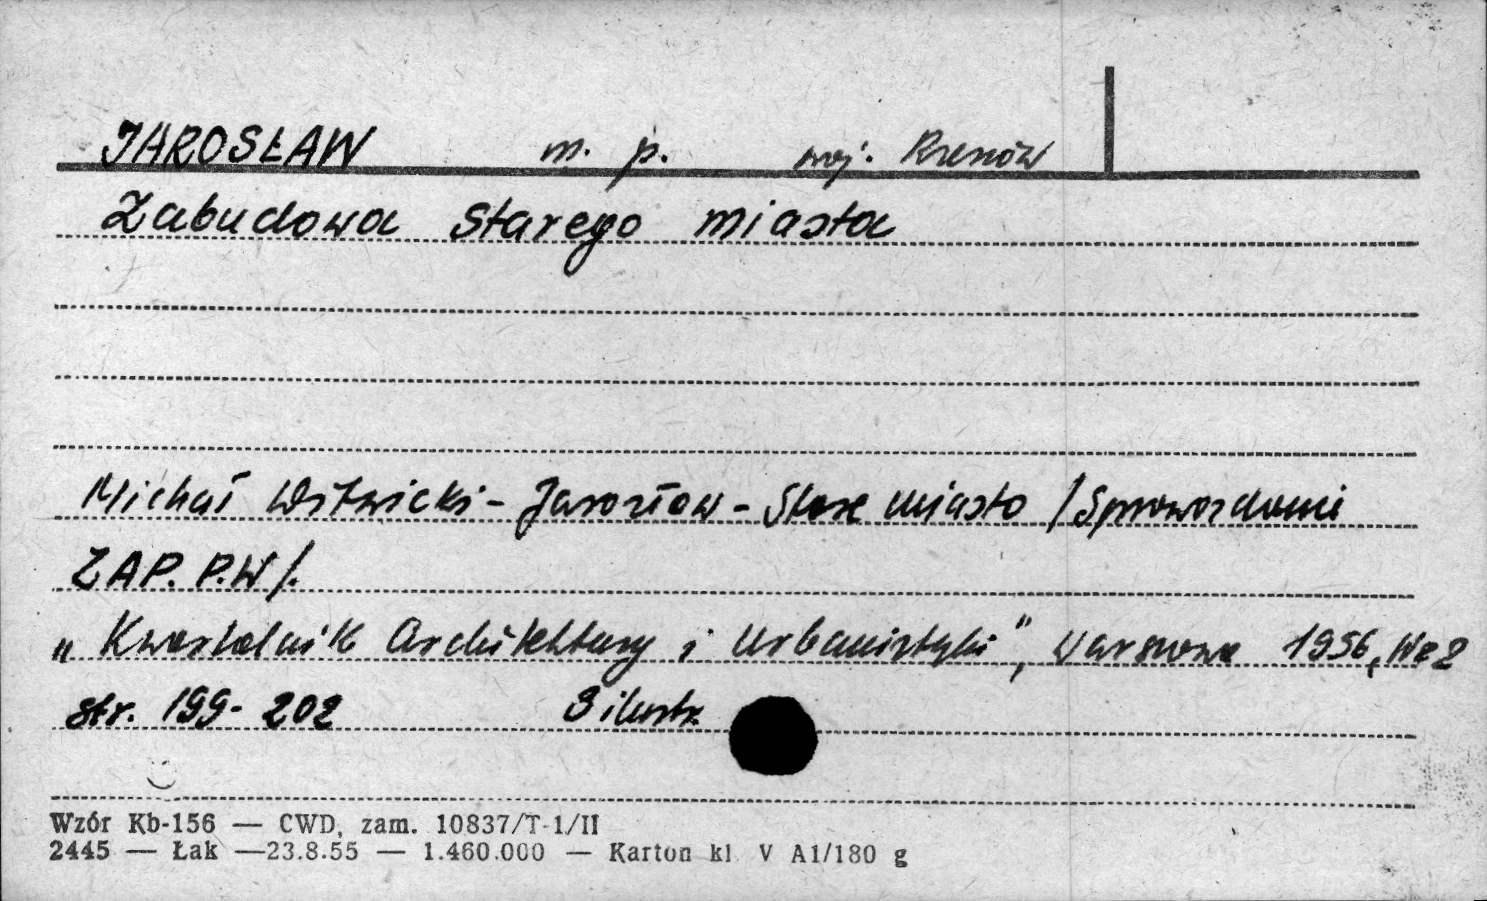 JAROSŁAW m. p. woj. Rzeszów
Zabudowa Starego miasta
Michał Witwicki - Jarosław - Stare miasto /Sprawozdanie
ZAP. P.W/.
„Kwartalnik Architektury i Urbanistyki", Warszawa 1956, Nr 2
str. 199- 202 3 ilustr.
Wzór Kb-156 — CWD, zam. 10837/T-1/II
2445 — Łak —23.8.55 — 1.460.000 — Karton kl. V A1/180 g